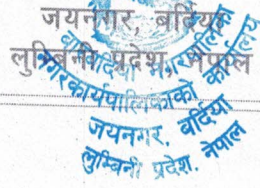 जयनगर, बर्दिया
लुम्बिनी प्रदेश, नेपाल
नगरकार्यपालिकाको कार्यालय
जयनगर, बर्दिया
लुम्बिनी प्रदेश, नेपाल